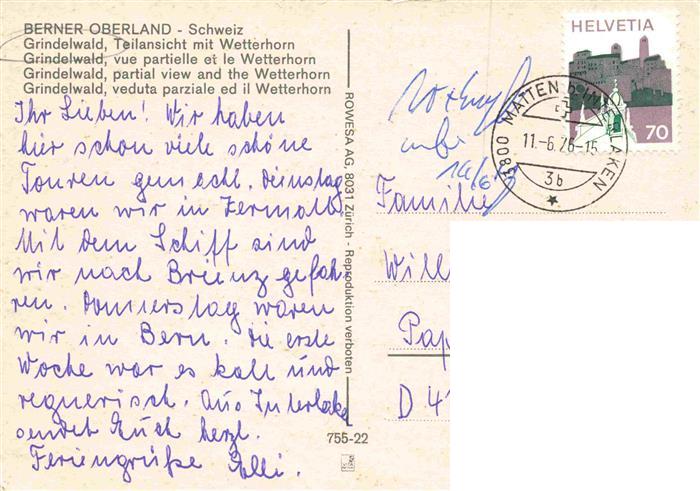 BERNER OBERLAND - Schweiz
Grindelwald, Teilansicht mit Wetterhorn
Grindelwald, vue partielle et le Wetterhorn
Grindelwald, partial view and the Wetterhorn
Grindelwald, veduta parziale ed il Wetterhorn
Ihr Lieben! Wir haben
hier schon viele schöne
Touren gemacht. Dienstag
waren wir in Zermatt.
Mit dem Schiff sind
wir nach Brienz gefah
ren. Donnerstag waren
wir in Bern. Die erste
Woche war es kalt und
regnerisch. Aus Interlake
sendet Euch herzl.
Feriengrüße Elli.
ROWESA AG, 8031 Zürich - Reproduktion verboten
755-22
HELVETIA
70
3800 MATTEN b. INTERLAKEN
11.-6.76-15
3b
14/6
Familie
Will
Pap
D 4